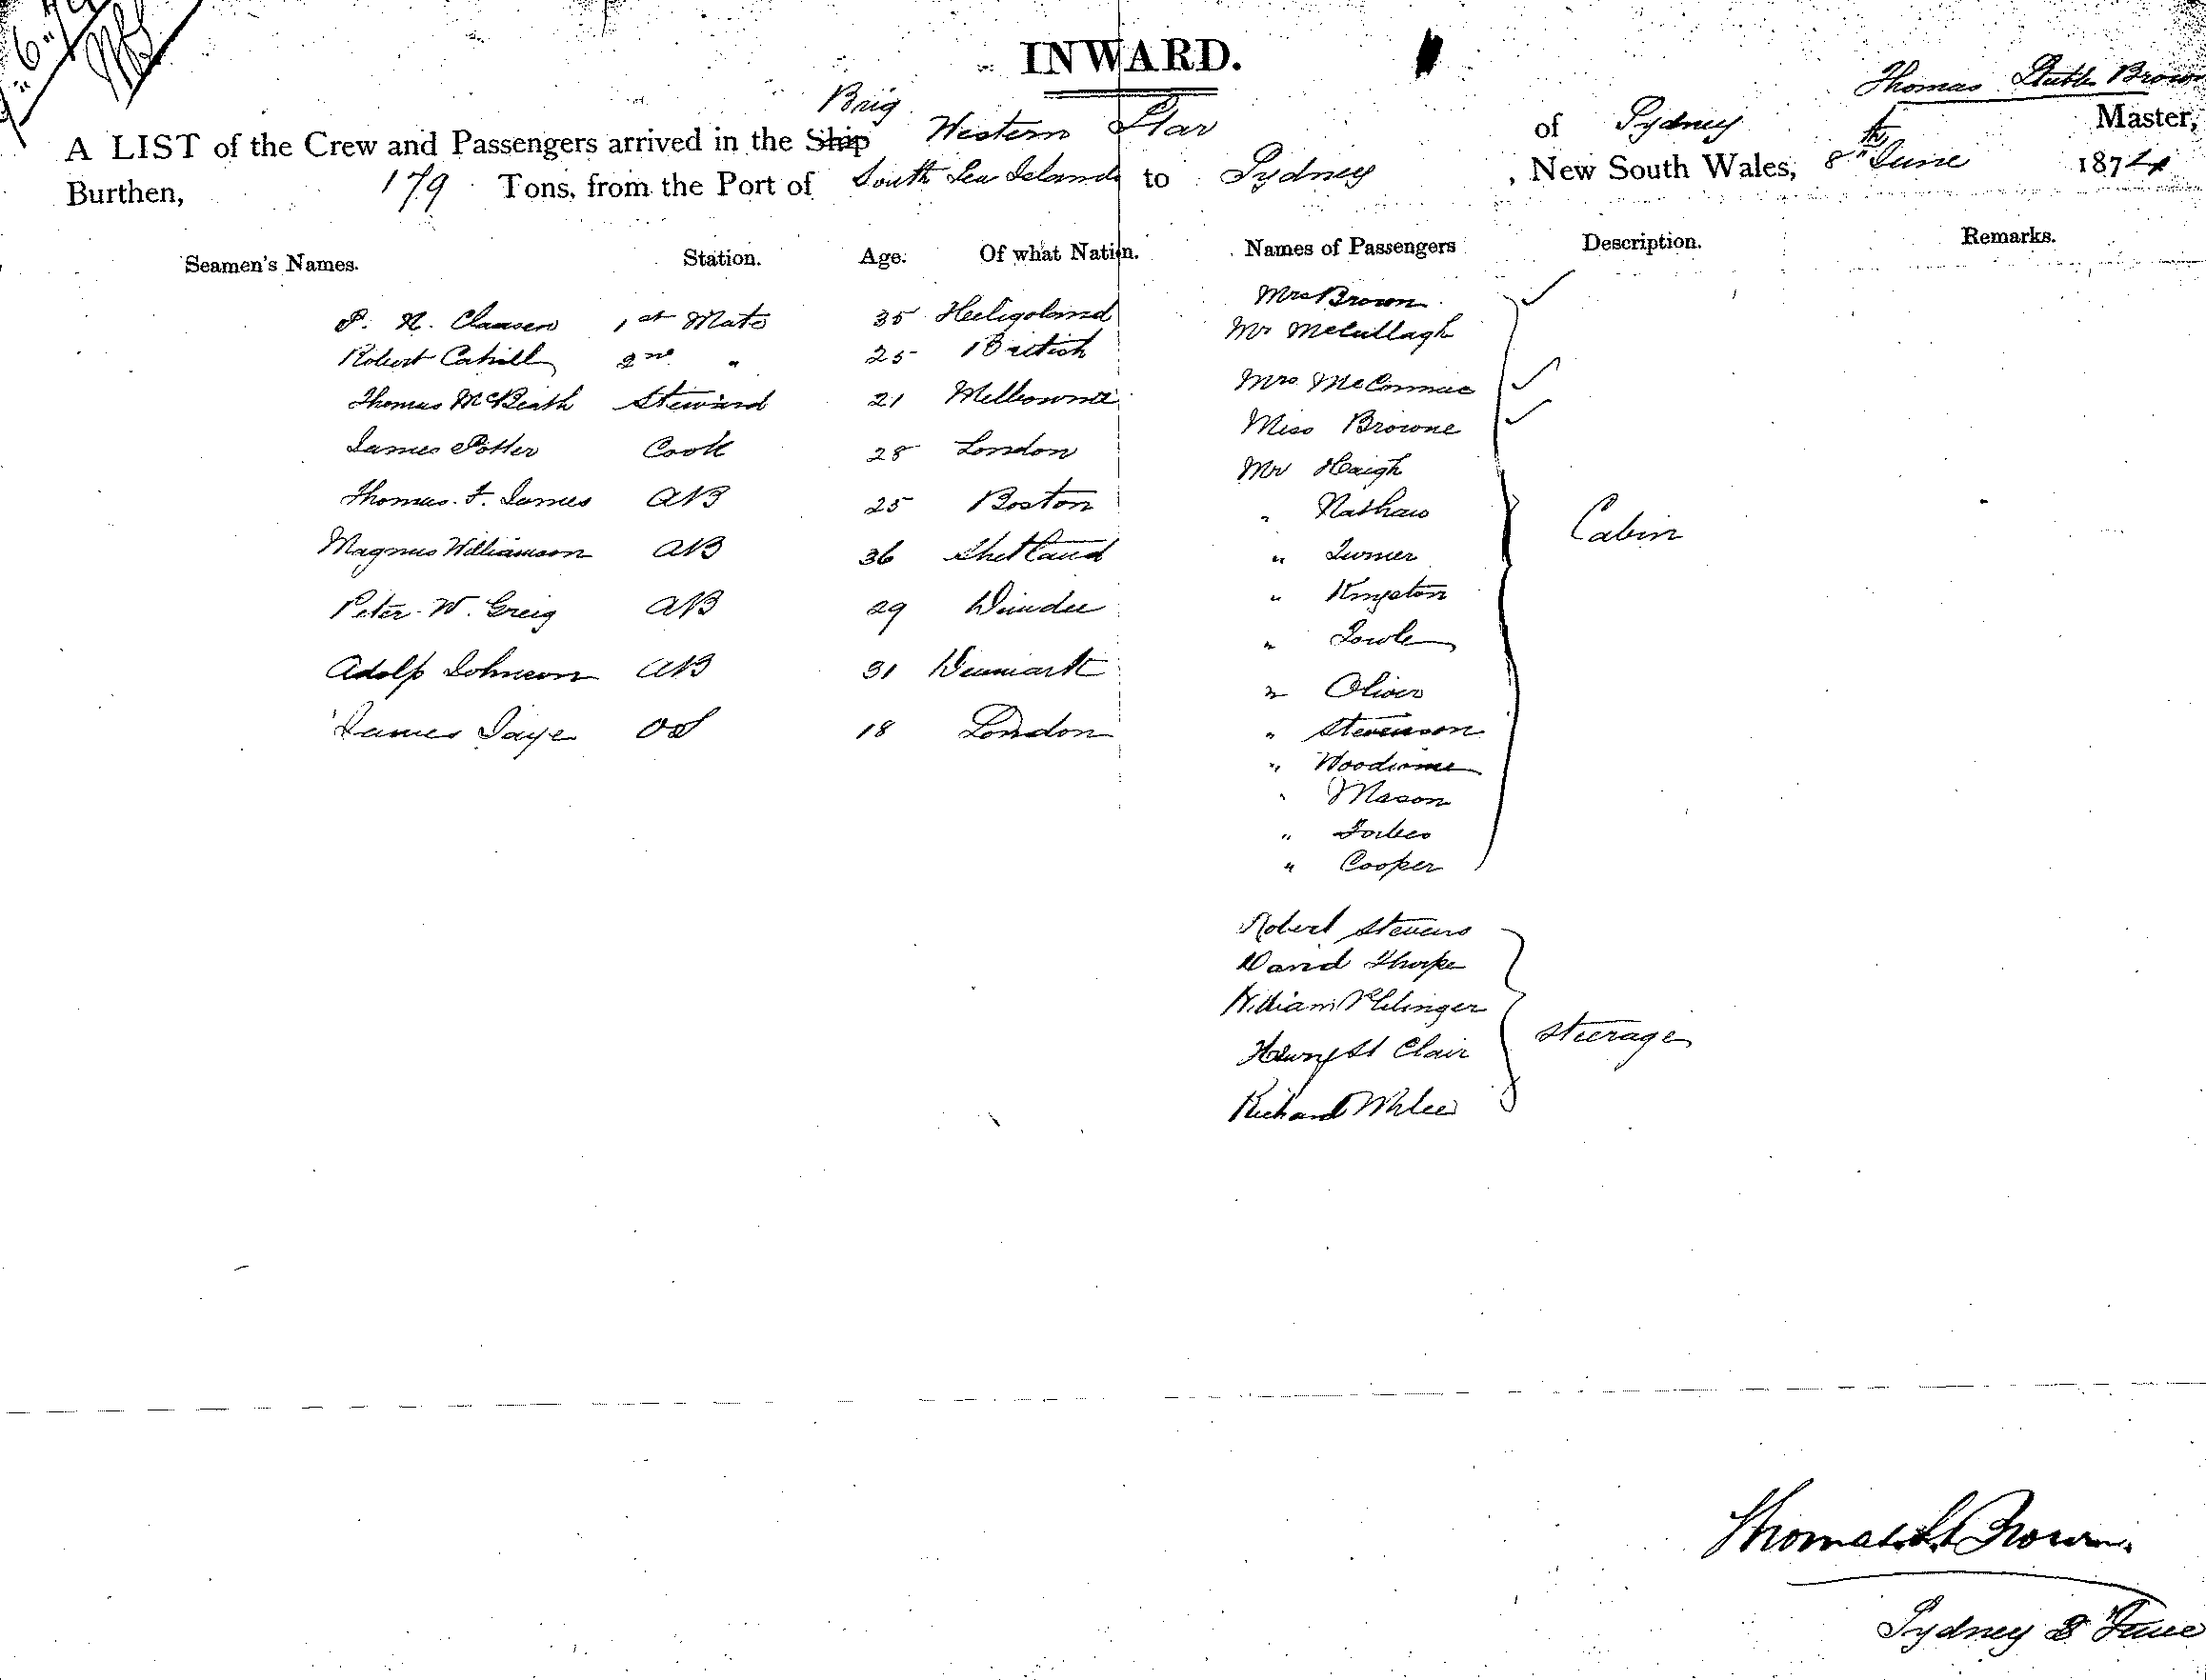 "6"
INWARD.
Thomas Brown
Brig
A LIST of the Crew and Passengers arrived in the Ship Western Star of Sydney Master,
Burthen, 179 Tons, from the Port of South Sea Islands to Sydney, New South Wales, 8th June 1874
Seamen's Names. Station. Age. Of what Nation. Names of Passengers Description. Remarks.
Mrs Brown
P. N. Claasen 1st Mate 35 Heligoland
Mr McCullagh
Robert Cahill 2nd " 25 British
Mrs McCormac
Thomas McBeath Steward 21 Melbourne
Miss Browne
James Potter Cook 28 London
Mr Haigh
Thomas. F. James AB 25 Boston
" Nathan
Cabin
Magnus Williamson AB 36 Shetland
" Turner
Peter. W. Greig AB 29 Dundee
" Kingston
" Towle
Adolp Johnson AB 31 Denmark
" Oliver
James Jaye OS 18 London
" Stevenson
"
" Mason
" Forbes
" Cooper
Robert Stevens
David Thorpe
William
Henry St Clair
Steerage
Richard
Thomas. S. Brown.
Sydney 8 June